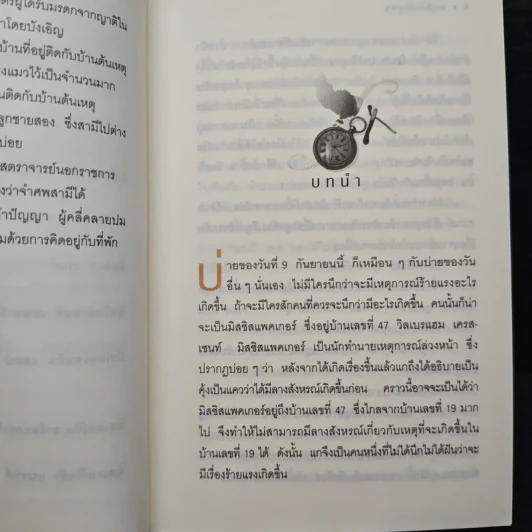 รผู้ได้รับมรดกจากญาติใน
าโดยบังเอิญ
บ้านที่อยู่ติดกับบ้านต้นเหตุ
งแมวไว้เป็นจำนวนมาก
นติดกับบ้านต้นเหตุ
ลูกชายสอง ซึ่งสามีไปต่าง
บ่อย
สตราจารย์นอกราชการ
งว่าจำศพสามีได้
าปัญญา ผู้คลี่คลายปม
มด้วยการคิดอยู่กับที่พัก
บทนำ
บ่ายของวันที่ 9 กันยายนนี้ ก็เหมือน ๆ กับบ่ายของวัน
อื่น ๆ นั่นเอง ไม่มีใครนึกว่าจะมีเหตุการณ์ร้ายแรงอะไร
เกิดขึ้น ถ้าจะมีใครสักคนที่ควรจะนึกว่ามีอะไรเกิดขึ้น คนนั้นก็น่า
จะเป็นมิสซิสแพคเกอร์ ซึ่งอยู่บ้านเลขที่ 47 วิลเบรแฮม เครส-
เซนท์ มิสซิสแพคเกอร์ เป็นนักทำนายเหตุการณ์ล่วงหน้า ซึ่ง
ปรากฏบ่อย ๆ ว่า หลังจากได้เกิดเรื่องขึ้นแล้วแกถึงได้อธิบายเป็น
คุ้งเป็นแควว่าได้มีลางสังหรณ์เกิดขึ้นก่อน คราวนี้อาจจะเป็นได้ว่า
มิสซิสแพคเกอร์อยู่ถึงบ้านเลขที่ 47 ซึ่งไกลจากบ้านเลขที่ 19 มาก
ไป จึงทำให้ไม่สามารถมีลางสังหรณ์เกี่ยวกับเหตุที่จะเกิดขึ้นใน
บ้านเลขที่ 19 ได้ ดังนั้น แกจึงเป็นคนหนึ่งที่ไม่ได้นึกไม่ได้ฝันว่าจะ
มีเรื่องร้ายแรงเกิดขึ้น